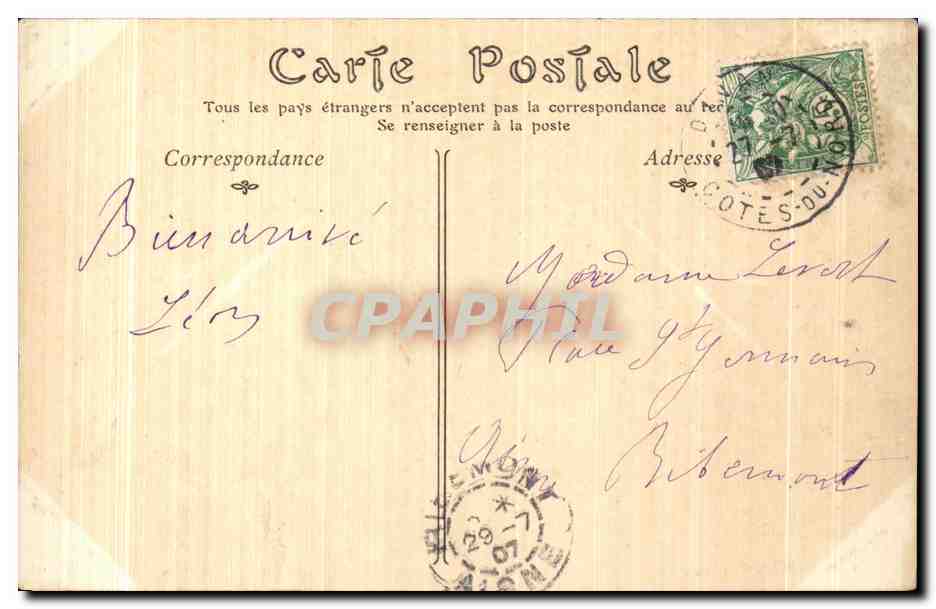 Carte Postale
Tous les pays étrangers n'acceptent pas la correspondance au rec
Se renseigner à la poste
Correspondance
Adresse
POSTES
27
COTES-DU-NORD
Bien arrivé
Léon
Madame Levert
Place St Germain
Aisne Ribemont
CPAPHIL
RIBEMONT
29 -7
07
AISNE